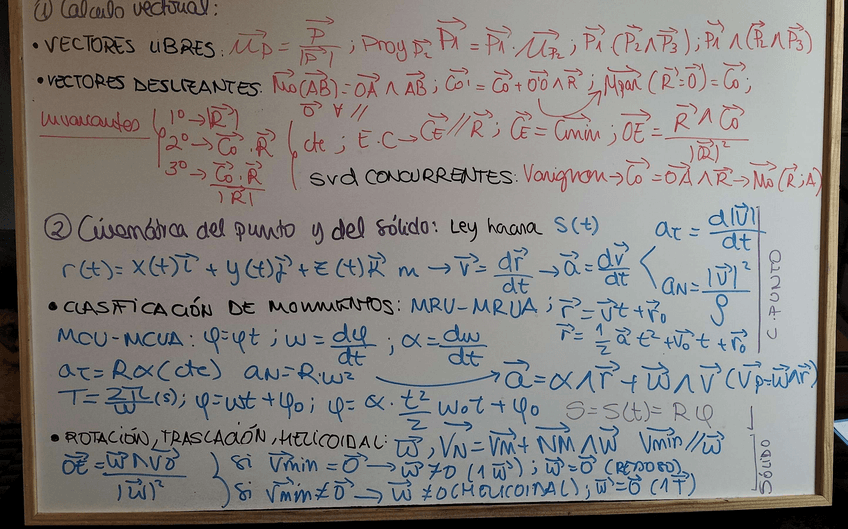 ① Calculo vectorial:
• VECTORES LIBRES: μ⃗p = P⃗/|P⃗| ; Proy P⃗₂ P⃗₁ = P⃗₁ · μ⃗P₂ ; P⃗₁ (P⃗₂ ∧ P⃗₃) ; P⃗₁ ∧ (P⃗₂ ∧ P⃗₃)
• VECTORES DESLIZANTES: M⃗o(A⃗B) = O⃗A ∧ A⃗B ; C⃗o' = C⃗o + O⃗'O ∧ R⃗ ; M⃗par (R⃗ = O⃗) = C⃗o ;
O⃗ ∀ //
invariantes { 1º → |R⃗|
2º → C⃗o · R⃗ { cte ; E.C → C⃗E // R⃗ ; C⃗E = C⃗min ; O⃗E = R⃗ ∧ C⃗o / |R⃗|²
3º → C⃗o · R⃗ / |R⃗|
svd CONCURRENTES: Varignon → C⃗o = O⃗A ∧ R⃗ → M⃗o (R⃗; A)
② Cinemática del punto y del sólido: Ley horaria S(t)
aτ = d|v⃗|/dt
r(t) = x(t)i⃗ + y(t)j⃗ + z(t)k⃗ m → v⃗ = dr⃗/dt → a⃗ = dv⃗/dt <
aN = |v⃗|²/ρ
PUNTO
• CLASIFICACIÓN DE MOVIMIENTOS: MRU - MRUA ; r⃗ = v⃗t + r⃗₀
MCU - MCUA: φ = φt ; ω = dφ/dt ; α = dω/dt
r⃗ = 1/2 a⃗ t² + v⃗₀t + r⃗₀
aτ = Rα (cte) aN = R·ω² → a⃗ = α ∧ r⃗ + ω⃗ ∧ v⃗ (v⃗p = ω⃗ ∧ r⃗)
T = 2π/ω (s) ; φ = ωt + φ₀ ; φ = α · t²/2 ω₀t + φ₀ S = S(t) = Rφ
• ROTACIÓN, TRASLACIÓN, HELICOIDAL: ω⃗, V⃗N = V⃗M + N⃗M ∧ ω⃗ V⃗min // ω⃗
O⃗E = ω⃗ ∧ V⃗o / |ω⃗|² } si V⃗min = O⃗ → ω⃗ ≠ 0 (1 ω⃗) ; ω⃗ = O⃗ (REPOSO)
si V⃗min ≠ O⃗ → ω⃗ ≠ 0 (HELICOIDAL) ; ω⃗ = O⃗ (1 T⃗)
SÓLIDO